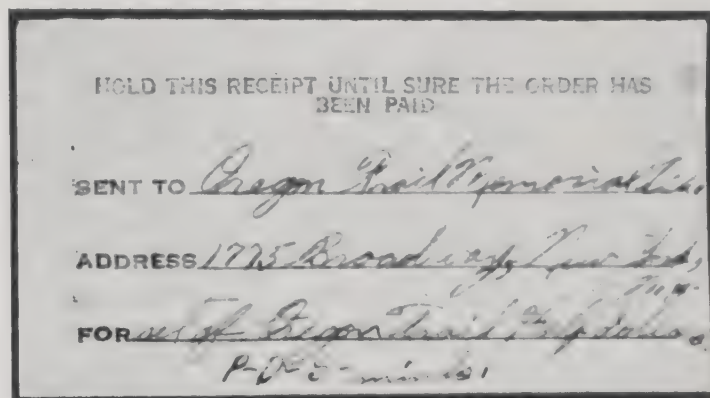 HOLD THIS RECEIPT UNTIL SURE THE ORDER HAS
BEEN PAID
SENT TO Oregon Trail Memorial
ADDRESS 1775 Broadway, New York,
N.Y.
FOR set of Oregon Trail